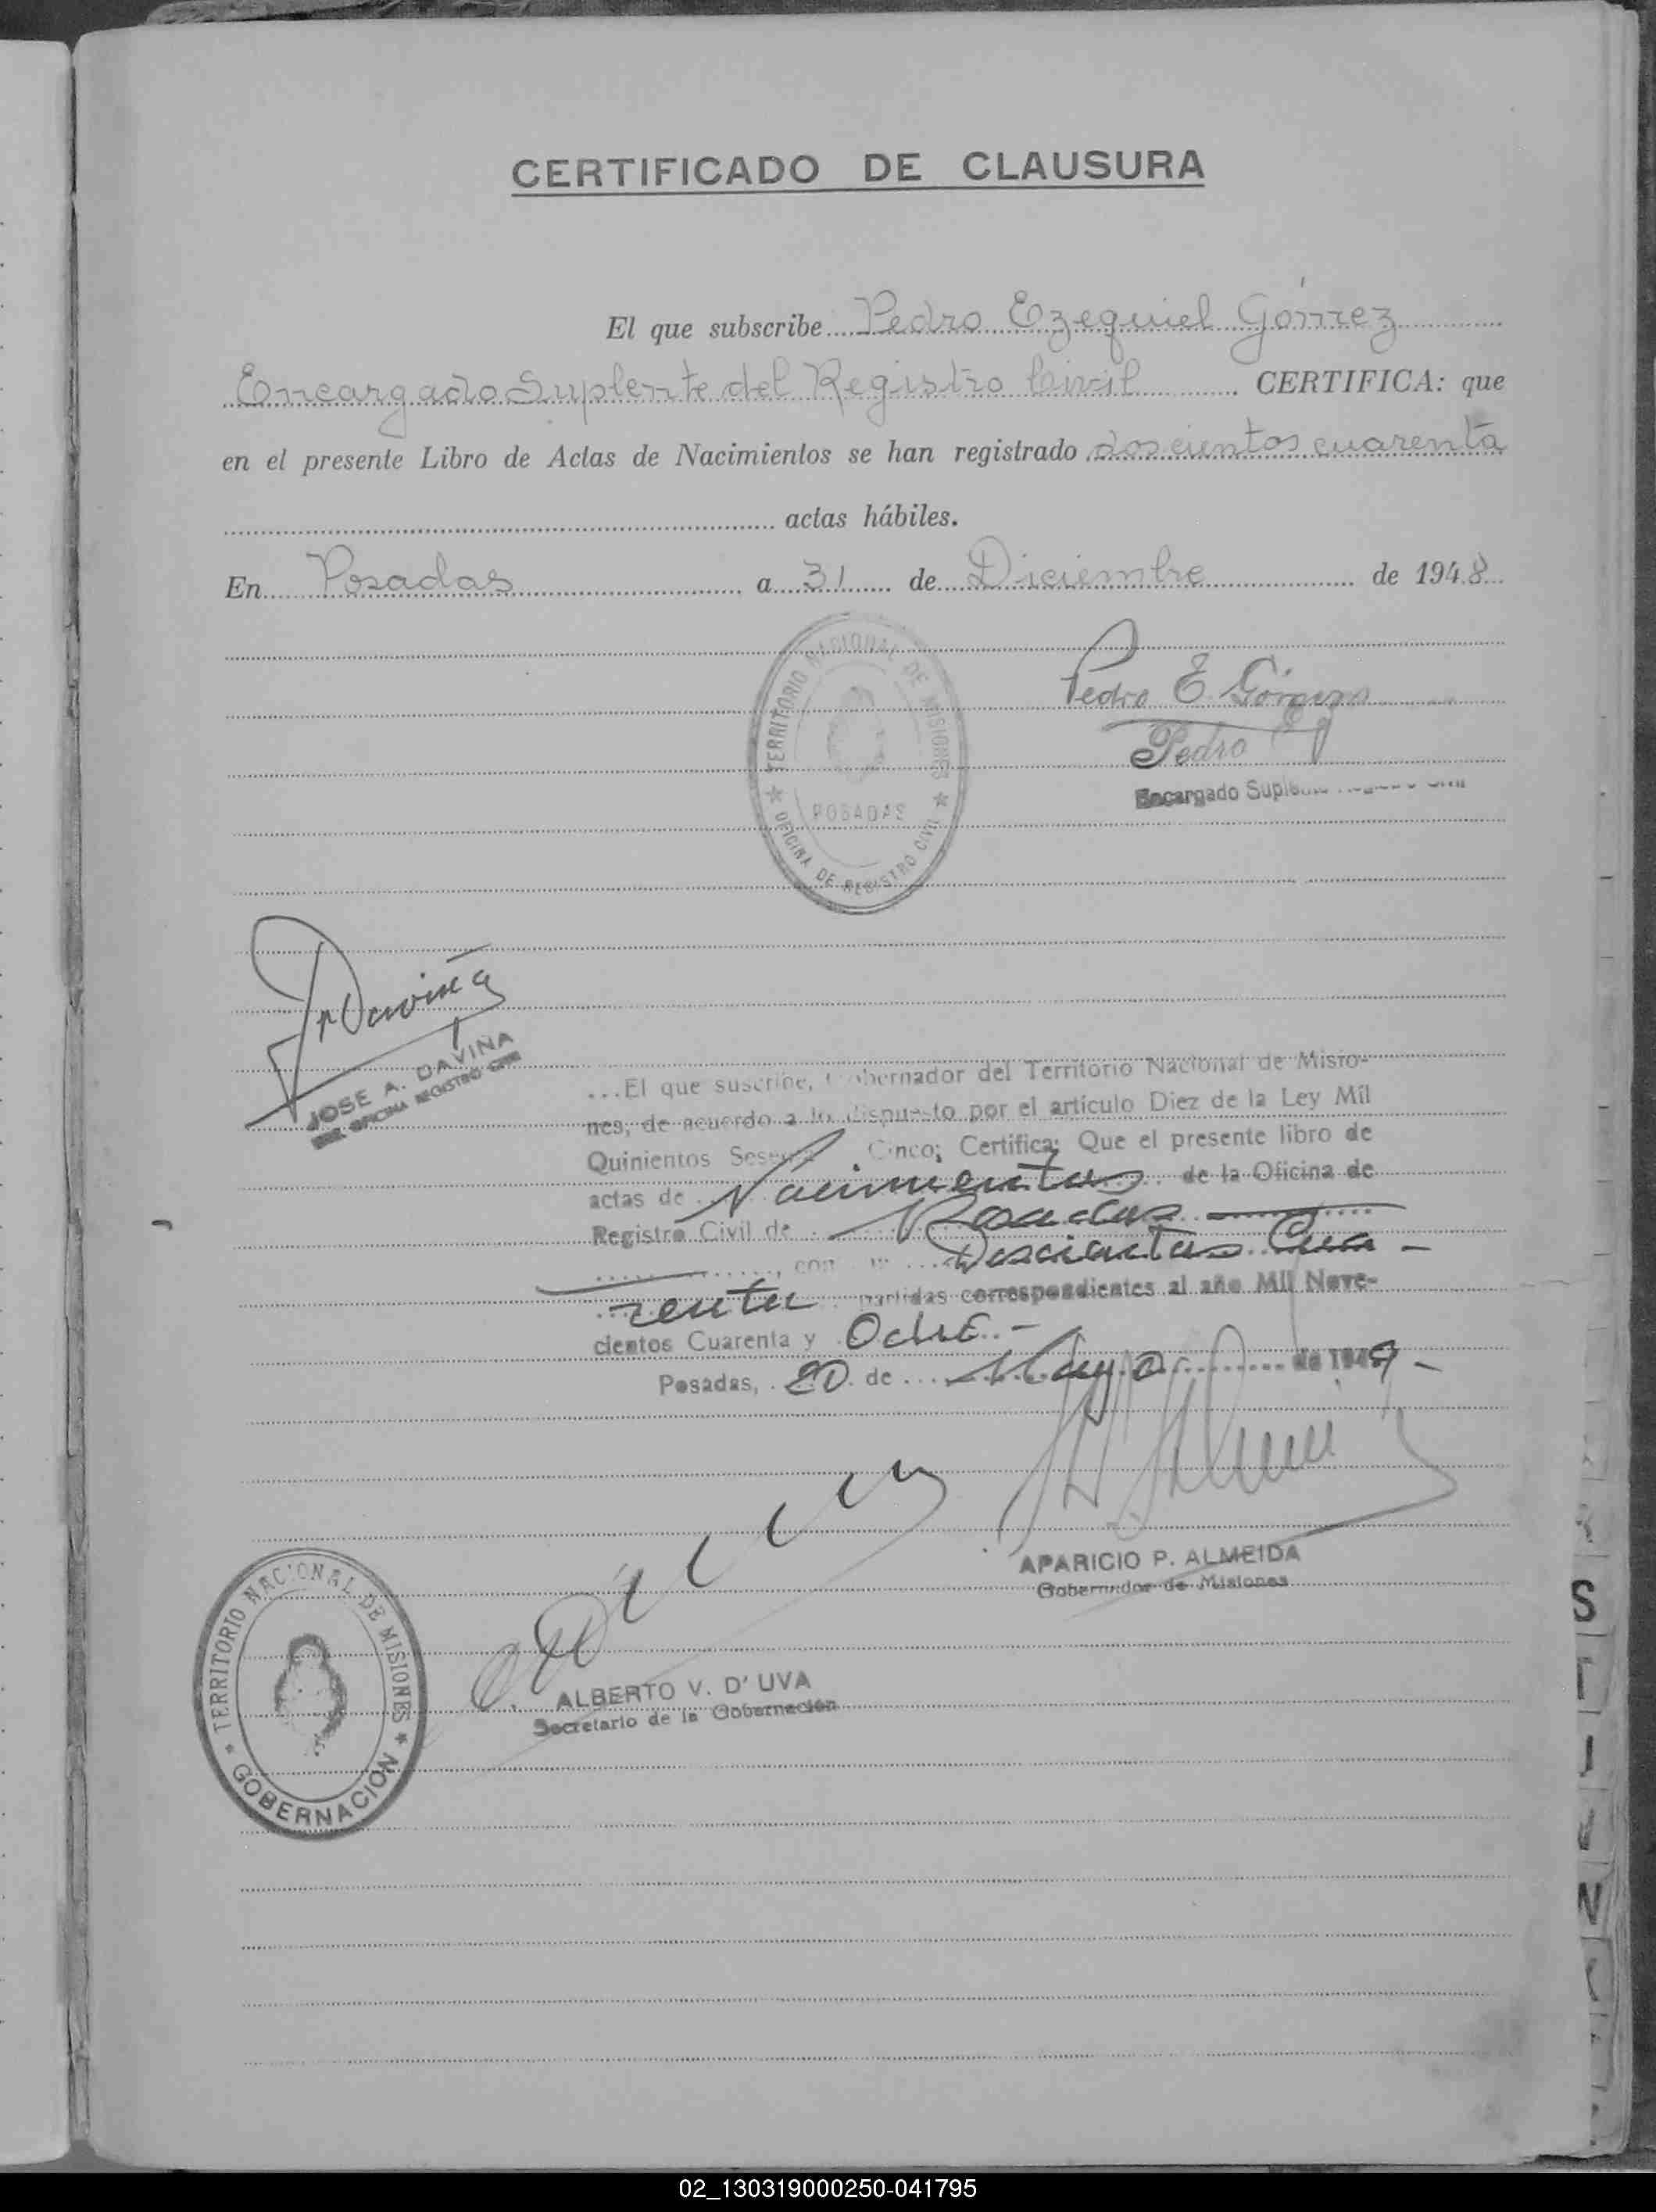 CERTIFICADO DE CLAUSURA
El que subscribe Pedro Ezequiel Gómez
Encargado Suplente del Registro Civil CERTIFICA: que
en el presente Libro de Actas de Nacimientos se han registrado doscientos cuarenta
actas hábiles.
En Posadas a 31 de Diciembre de 1948
TERRITORIO NACIONAL DE MISIONES
POSADAS
OFICINA DE REGISTRO CIVIL
Pedro E. Gómez
Pedro
Encargado Suplente
JOSE A. DAVIÑA
OFICINA REGISTRO CIVIL
El que suscribe, Gobernador del Territorio Nacional de Misio-
nes, de acuerdo a lo dispuesto por el artículo Diez de la Ley Mil
Quinientos Cinco; Certifica: Que el presente libro de
actas de Nacimientos de la Oficina de
Registro Civil de Posadas
, con Doscientas Cua-
renta partidas correspondientes al año Mil Nove-
cientos Cuarenta y Ocho.-
Posadas, 20 de Mayo de 1949-
APARICIO P. ALMEIDA
Gobernador de Misiones
TERRITORIO NACIONAL DE MISIONES
GOBERNACION
ALBERTO V. D'UVA
Secretario de la Gobernación
02_130319000250-041795